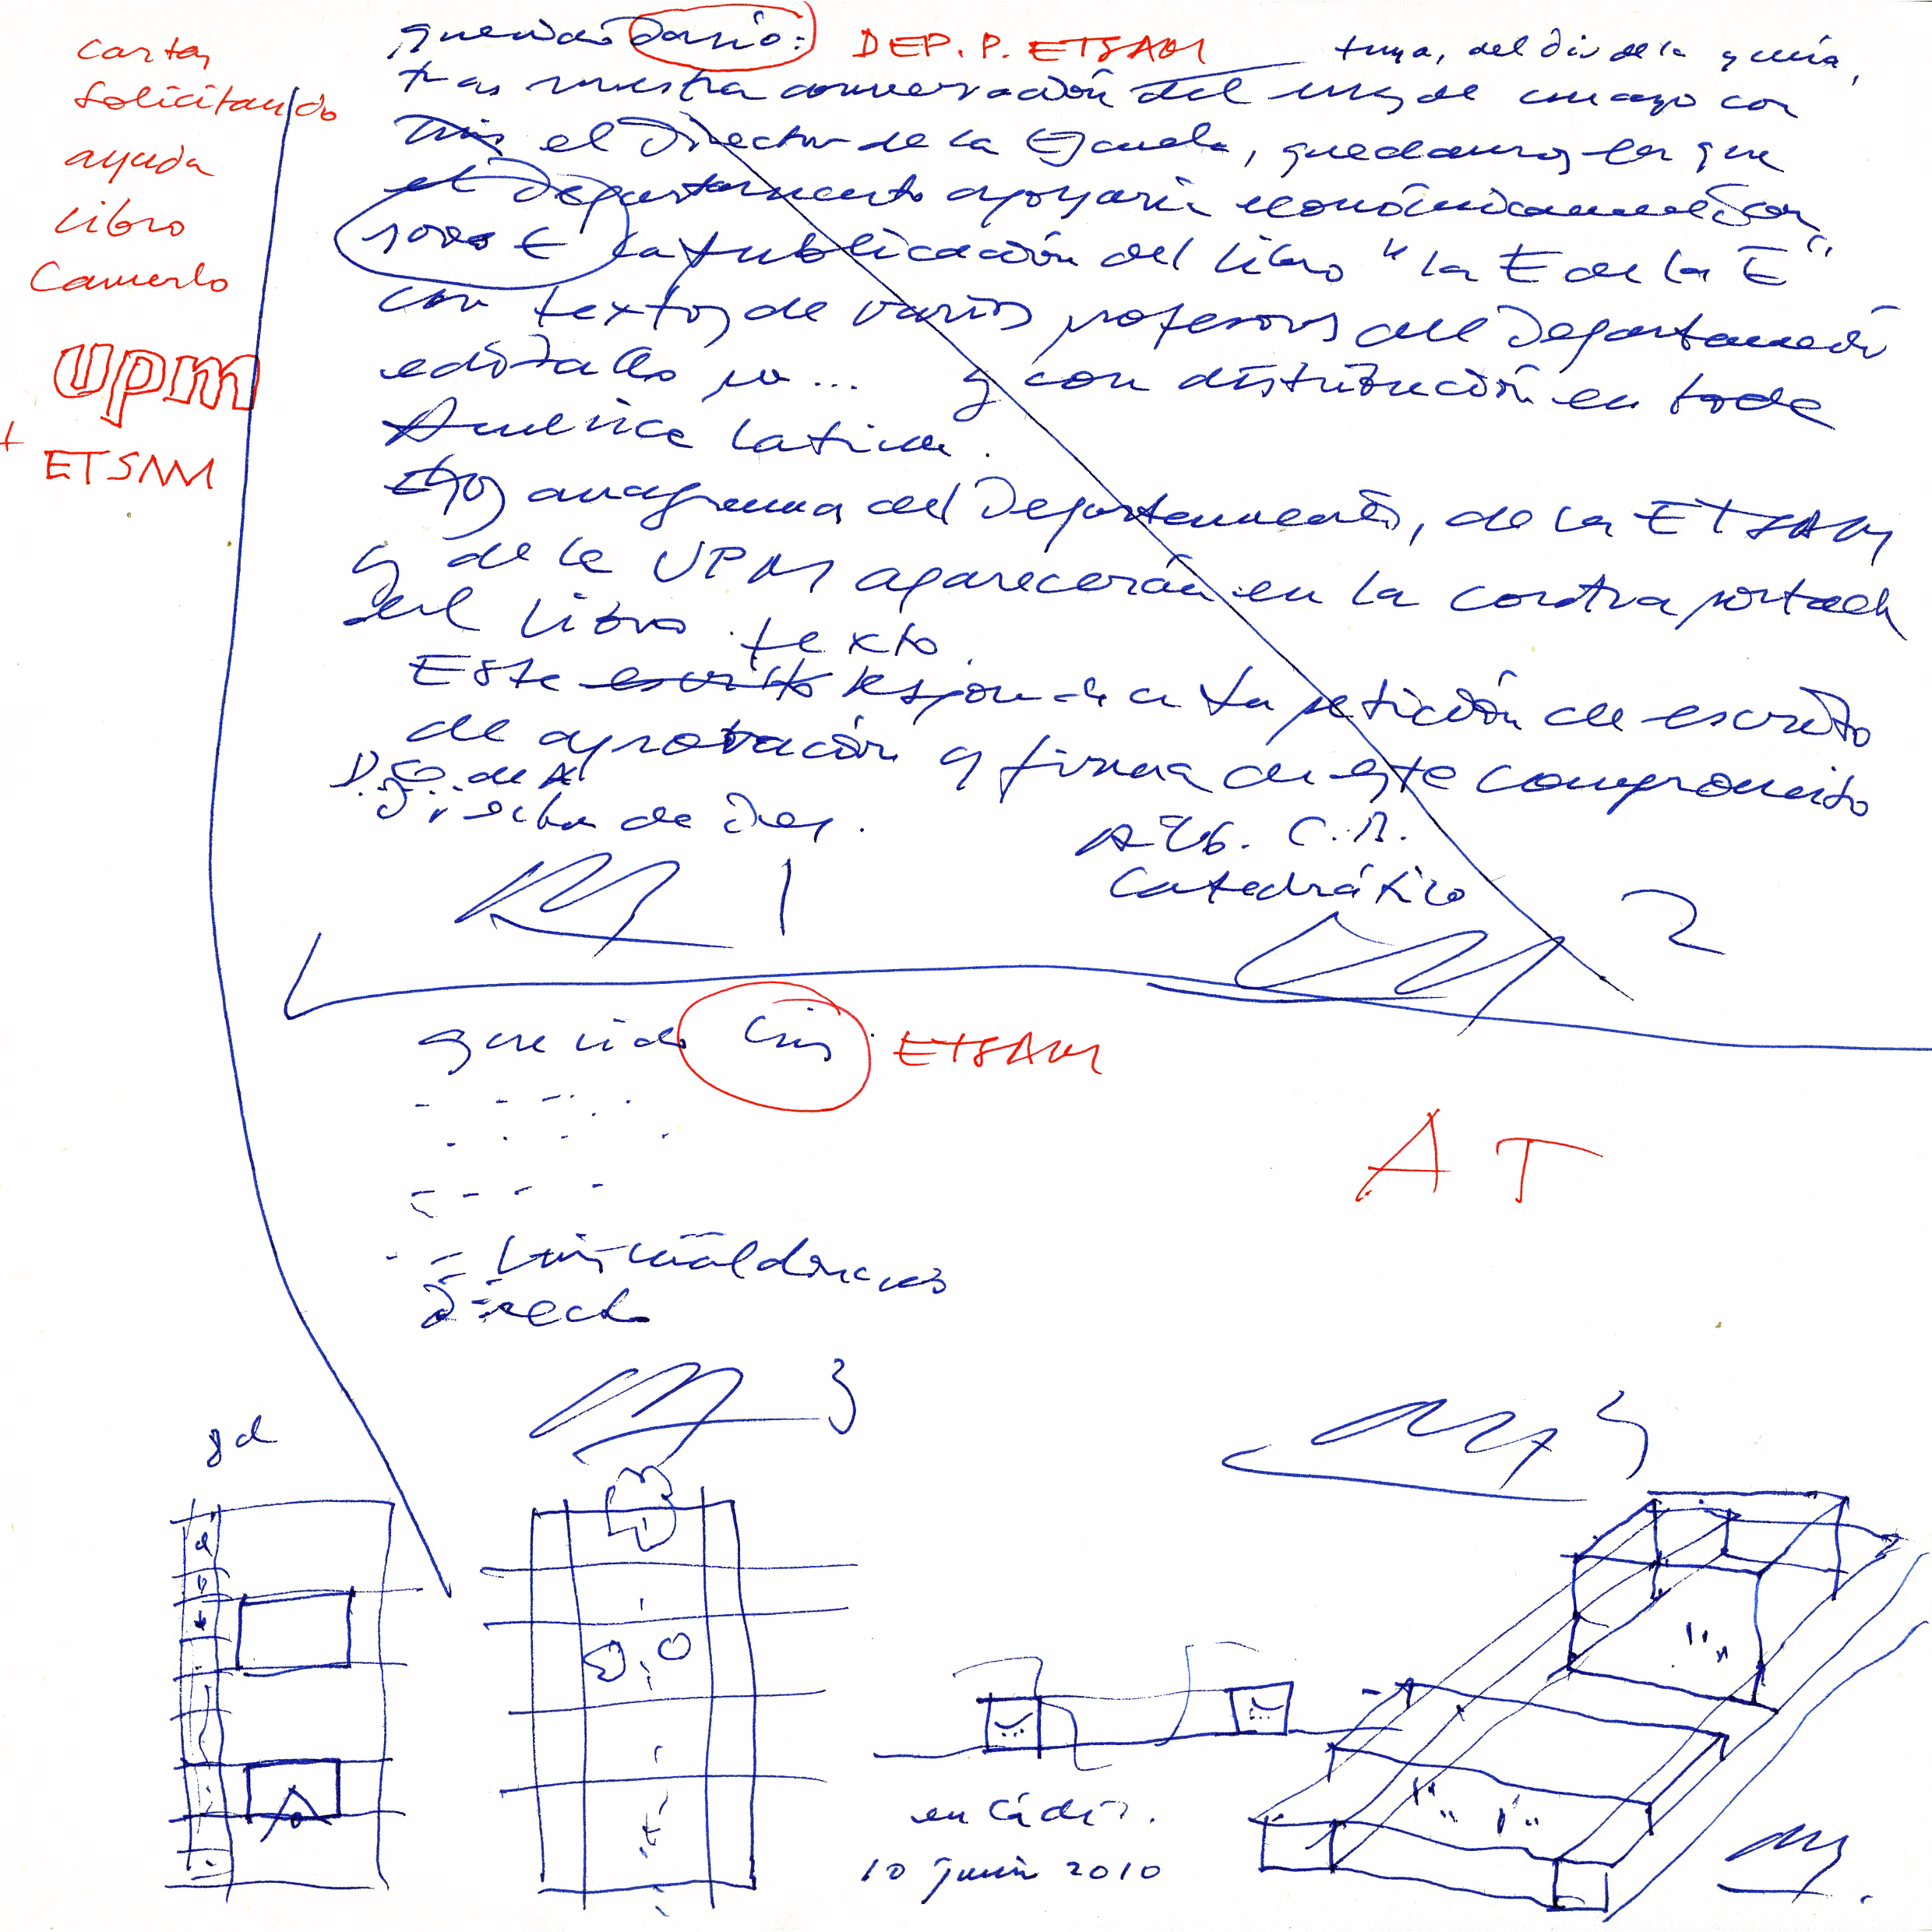 cartas
solicitando
ayuda
libro
Camerlo
upm
+
ETSAM
querido Darío:
DEP. P. ETSAM
tuya, del día de la
tras nuestra conversación del mes de mayo con
Luis el Director de la Escuela, quedamos en que
el Departamento apoyaría económicamente con
1000 € la publicación del libro "la E de la E"
con textos de varios profesores del Departamento
editado por... y con distribución en toda
América Latina.
anagrama del Departamento, de la ETSAM
y de la UPM aparecerán en la contraportada
del libro.
texto
Este escrito responde a tu petición de escrito
de aprobación y firma de este compromiso
D. G. de A.
Director de Dep.
1
Alb. C. B.
Catedrático
2
querido Luis:
ETSAM
A T
Luis Maldonado
Director
3
en Cádiz.
10 junio 2010